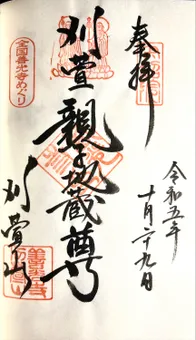 奉拝
令和五年
十月二十九日
刈萱親子地蔵尊
全国善光寺めぐり
刈萱山